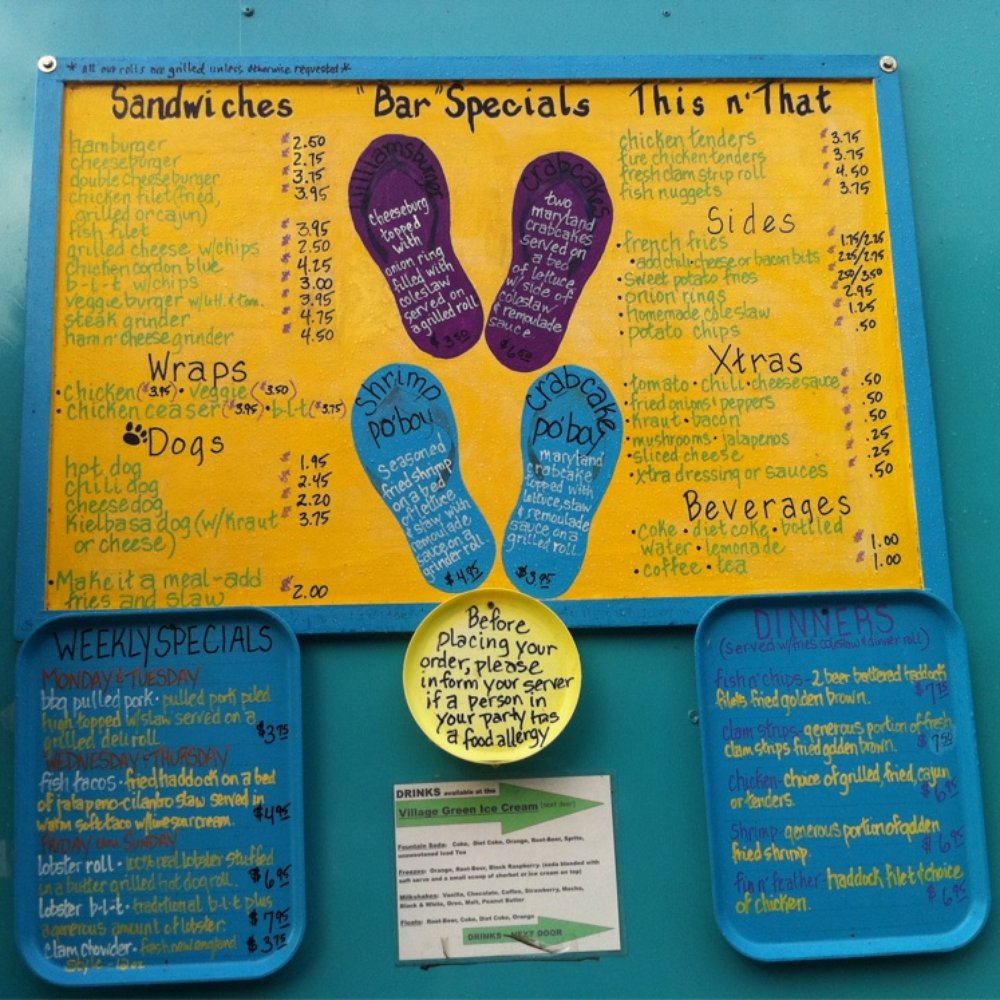 * All our rolls are grilled unless otherwise requested *
Sandwiches
hamburger 2.50
cheeseburger 2.75
double cheeseburger 3.75
chicken filet (fried, 3.95
grilled or cajun)
fish filet 3.95
grilled cheese w/chips 2.50
chicken cordon blue 4.25
b-l-t w/chips 3.00
veggie burger w/lett. & tom. 3.95
steak grinder 4.75
ham n' cheese grinder 4.50
Wraps
• chicken ($3.95) • veggie ($3.50)
• chicken ceaser ($3.95) • b-l-t ($3.75)
Dogs
hot dog 1.95
chili dog 2.45
cheese dog 2.20
Kielbasa dog (w/kraut 3.75
or cheese)
• Make it a meal - add
fries and slaw 2.00
"Bar" Specials
Williamsburger
cheeseburg
topped
with
onion ring
filled with
coleslaw
served on
a grilled roll
$3.50
Crabcakes
two
maryland
crabcakes
served on
a bed
of lettuce
w/ side of
coleslaw
& remoulade
sauce
$6.50
shrimp
po'boy
seasoned
fried shrimp
on a bed
of lettuce
& slaw with
remoulade
sauce on a
grinder roll
$4.95
crabcake
po'boy
maryland
crabcake
topped with
lettuce, slaw
& remoulade
sauce on a
grilled roll
$3.95
This n' That
chicken tenders 3.75
fire chicken tenders 3.75
fresh clam strip roll 4.50
fish nuggets 3.75
Sides
• french fries 1.75/2.25
• add chili • cheese or bacon bits 2.25/2.75
• sweet potato fries 2.50/3.50
• onion rings 2.95
• homemade coleslaw 1.25
• potato chips .50
Xtras
• tomato • chili • cheese sauce .50
• fried onions & peppers .50
• kraut • bacon .50
• mushrooms • jalapenos .25
• sliced cheese .25
• xtra dressing or sauces .50
Beverages
• coke • diet coke • bottled
water • lemonade 1.00
• coffee • tea 1.00
WEEKLY SPECIALS
MONDAY & TUESDAY
bbq pulled pork - pulled pork piled
high topped w/slaw served on a
grilled deli roll $3.75
WEDNESDAY & THURSDAY
fish tacos - fried haddock on a bed
of jalapeno-cilantro slaw served in
warm soft taco w/lime sour cream. $4.95
FRIDAY SUNDAY
lobster roll - 100% real lobster stuffed
in a butter grilled hot dog roll. $6.95
lobster b-l-t - traditional b-l-t plus
a generous amount of lobster. $7.95
clam chowder - fresh new england $3.75
style - 12 oz
Before
placing your
order, please
inform your server
if a person in
your party has
a food allergy
DRINKS available at the
Village Green Ice Cream (next door)
Fountain Soda: Coke, Diet Coke, Orange, Root-Beer, Sprite,
unsweetened Iced Tea
Freezes: Orange, Root-Beer, Black Raspberry. (soda blended with
soft serve and a small scoop of sherbet or ice cream on top)
Milkshakes: Vanilla, Chocolate, Coffee, Strawberry, Mocha,
Black & White, Oreo, Malt, Peanut Butter
Floats: Root-Beer, Coke, Diet Coke, Orange
DRINKS - NEXT DOOR
DINNERS
(served w/fries coleslaw & dinner roll)
fish n' chips - 2 beer battered haddock
filets fried golden brown.
clam strips - generous portion of fresh
clam strips fried golden brown. $7.50
chicken - choice of grilled, fried, cajun
or tenders. $6.95
shrimp - generous portion of golden
fried shrimp. $6.95
fin n' feather - haddock filet & choice
of chicken. $6.95